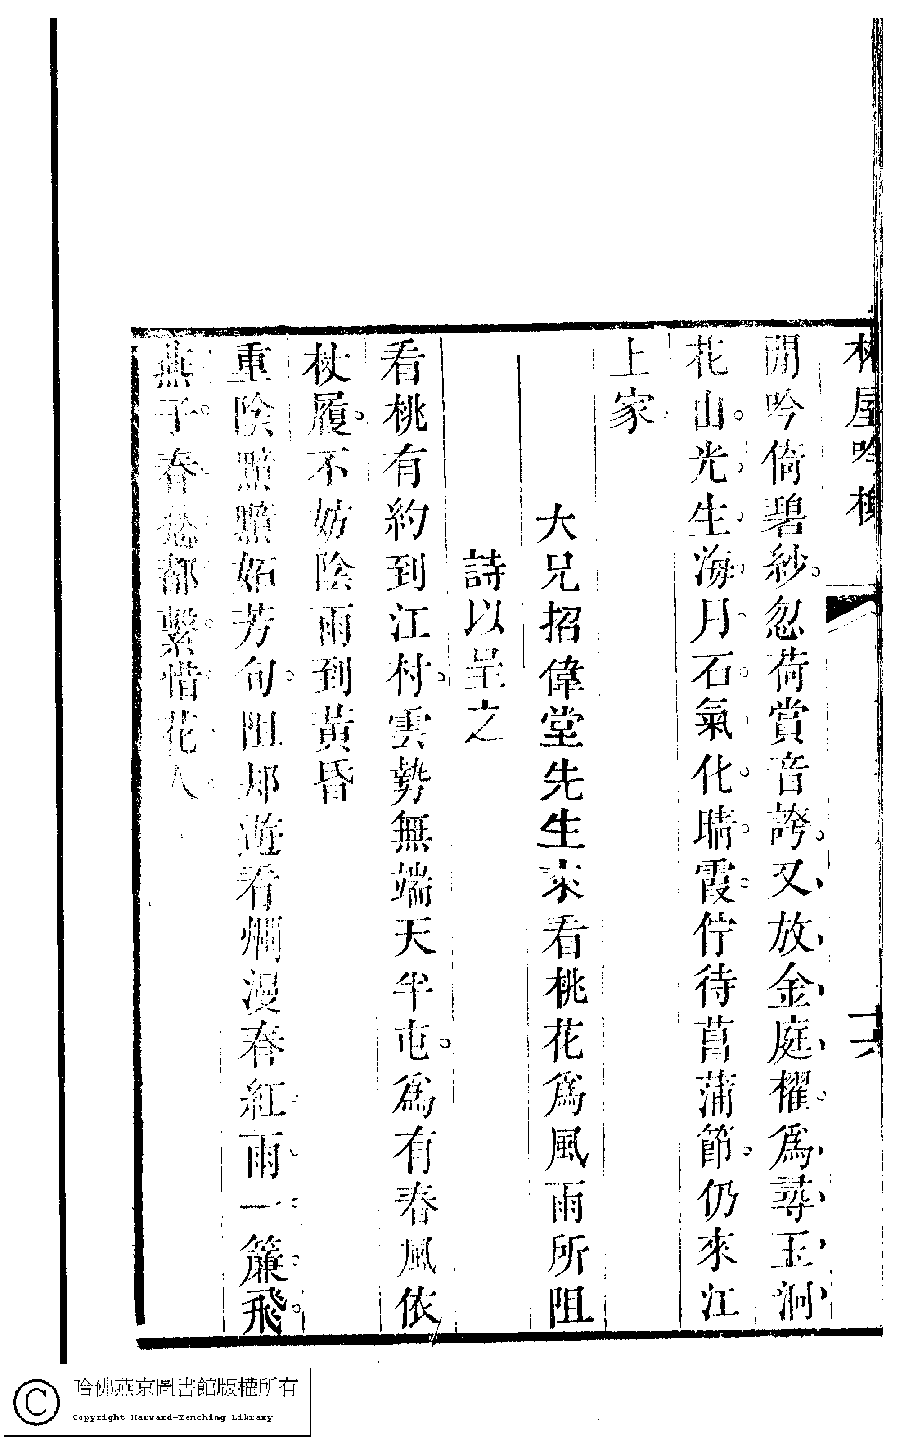 林屋吟榭
十六
閒吟倚碧紗。忽荷賞音誇。又放金庭櫂。爲尋玉洞
花。山光生海月。石氣化晴霞。佇待菖蒲節。仍來江
上家
大兄招偉堂先生來看桃花爲風雨所阻
詩以呈之
看桃有約到江村。雲勢無端天半屯。爲有春風依
杖履。不妨陰雨到黃昏
重陰黯黯妬芳句。阻却遊看爛漫春。紅雨一簾飛
燕子。春愁都繫惜花人
哈佛燕京圖書館版權所有
Copyright Harvard-Yenching Library